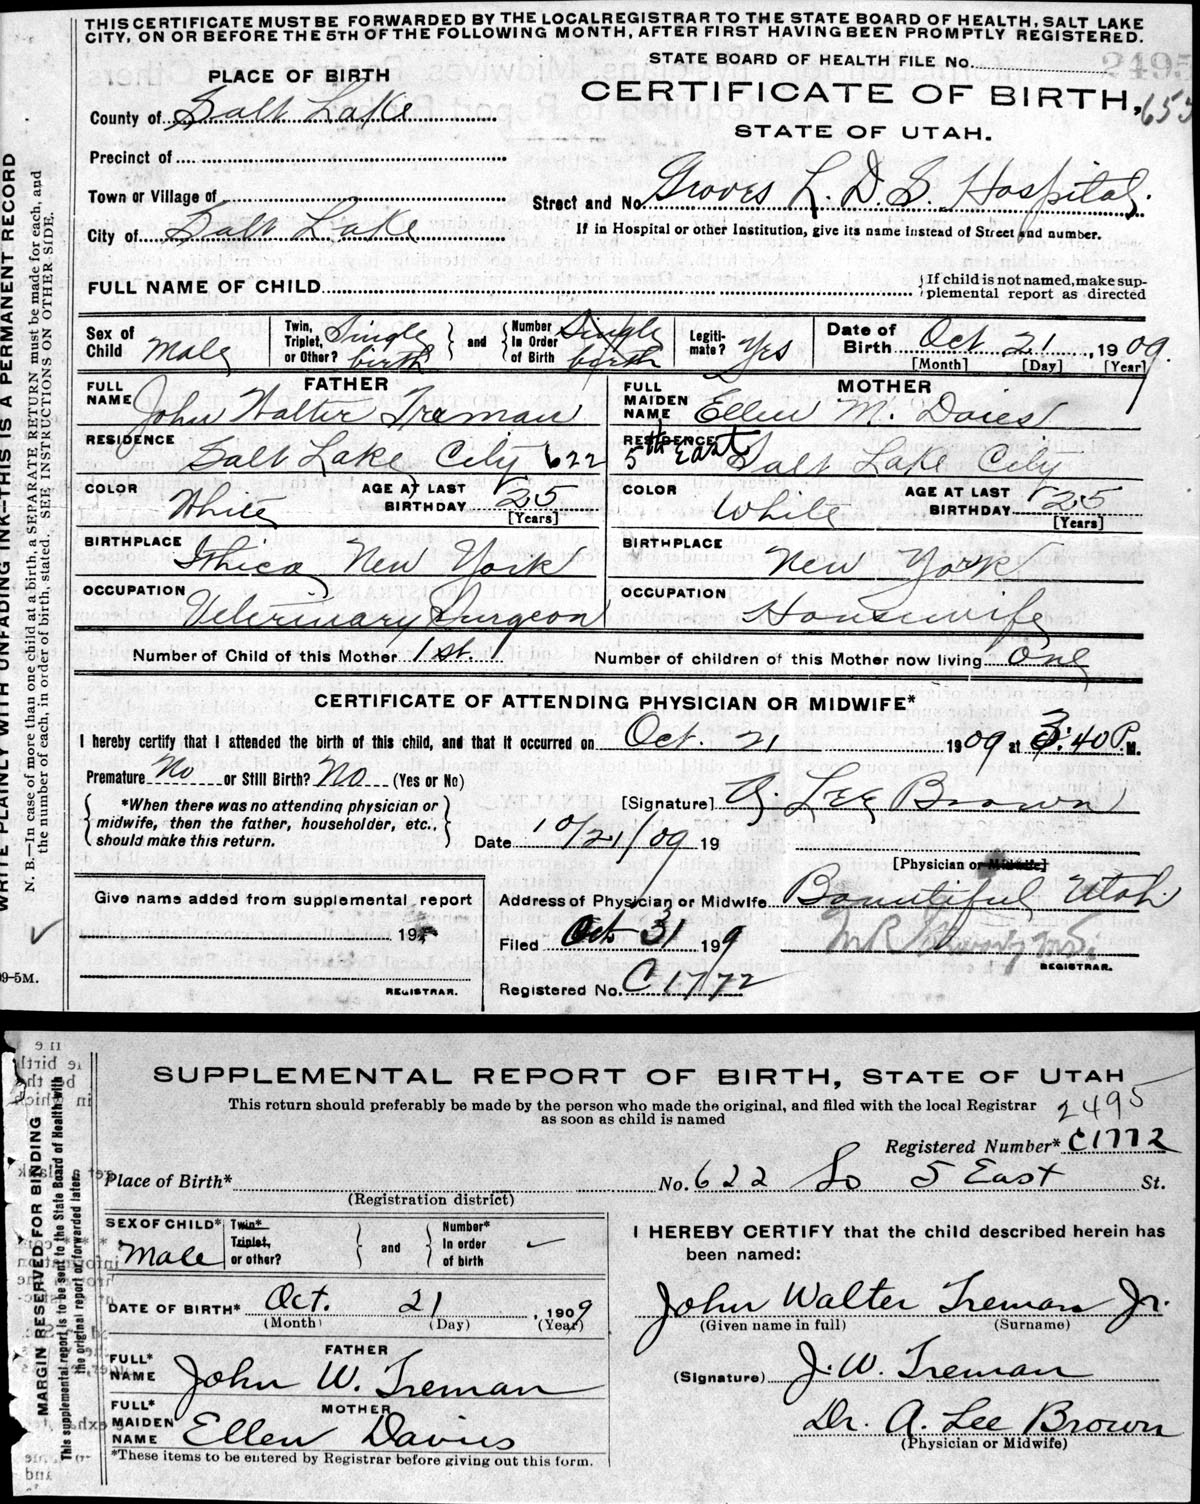 THIS CERTIFICATE MUST BE FORWARDED BY THE LOCAL REGISTRAR TO THE STATE BOARD OF HEALTH, SALT LAKE
CITY, ON OR BEFORE THE 5TH OF THE FOLLOWING MONTH, AFTER FIRST HAVING BEEN PROMPTLY REGISTERED.
STATE BOARD OF HEALTH FILE No. 2495
PLACE OF BIRTH
CERTIFICATE OF BIRTH, 655
County of Salt Lake
STATE OF UTAH.
Precinct of
Town or Village of
Street and No. Groves L. D. S. Hospital.
City of Salt Lake
If in Hospital or other Institution, give its name instead of Street and number.
FULL NAME OF CHILD
If child is not named, make sup-
plemental report as directed
Sex of Child Male
Twin, Triplet, or Other? Single birth
and
Number In Order of Birth Single birth
Legiti- mate? Yes
Date of Birth Oct 21, 1909.
[Month] [Day] [Year]
FATHER
FULL NAME John Walter Treman
MOTHER
FULL MAIDEN NAME Ellen M. Davies
RESIDENCE Salt Lake City 622
RESIDENCE 5th East Salt Lake City
COLOR White
AGE AT LAST BIRTHDAY 25 [Years]
COLOR White
AGE AT LAST BIRTHDAY 25 [Years]
BIRTHPLACE Ithica New York
BIRTHPLACE New York
OCCUPATION Veterinary Surgeon
OCCUPATION Housewife
Number of Child of this Mother 1st.
Number of children of this Mother now living one
CERTIFICATE OF ATTENDING PHYSICIAN OR MIDWIFE*
I hereby certify that I attended the birth of this child, and that it occurred on Oct. 21 1909 at 3:40 P.M.
Premature No or Still Birth? No (Yes or No)
*When there was no attending physician or
midwife, then the father, householder, etc.,
should make this return.
[Signature] A. Lee Brown
Date 10/21/09 19
[Physician or Midwife]
Give name added from supplemental report
19
REGISTRAR.
Address of Physician or Midwife Bountiful Utah.
Filed Oct 31 199
REGISTRAR.
Registered No. C1772
WRITE PLAINLY WITH UNFADING INK—THIS IS A PERMANENT RECORD
N. B.—In case of more than one child at a birth, a SEPARATE RETURN must be made for each, and
the number of each, in order of birth, stated. SEE INSTRUCTIONS ON OTHER SIDE.
09-5M.
SUPPLEMENTAL REPORT OF BIRTH, STATE OF UTAH
This return should preferably be made by the person who made the original, and filed with the local Registrar
as soon as child is named
2495
Registered Number* C1772
Place of Birth*
(Registration district)
No. 622 So 5 East St.
SEX OF CHILD* Male
Twin* Triplet, or other?
and
Number* In order of birth
DATE OF BIRTH* Oct. 21, 1909
(Month) (Day) (Year)
FATHER
FULL* NAME John W. Treman
MOTHER
FULL* MAIDEN NAME Ellen Davies
*These items to be entered by Registrar before giving out this form.
I HEREBY CERTIFY that the child described herein has
been named:
John Walter Treman Jr.
(Given name in full) (Surname)
(Signature) J. W. Treman
Dr. A. Lee Brown
(Physician or Midwife)
MARGIN RESERVED FOR BINDING
This supplemental report is to be sent to the State Board of Health with
the original report or forwarded later.